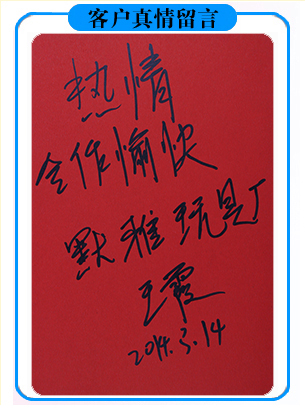 客户真情留言
热情
合作愉快
默雅玩具厂
王霞
2014.3.14